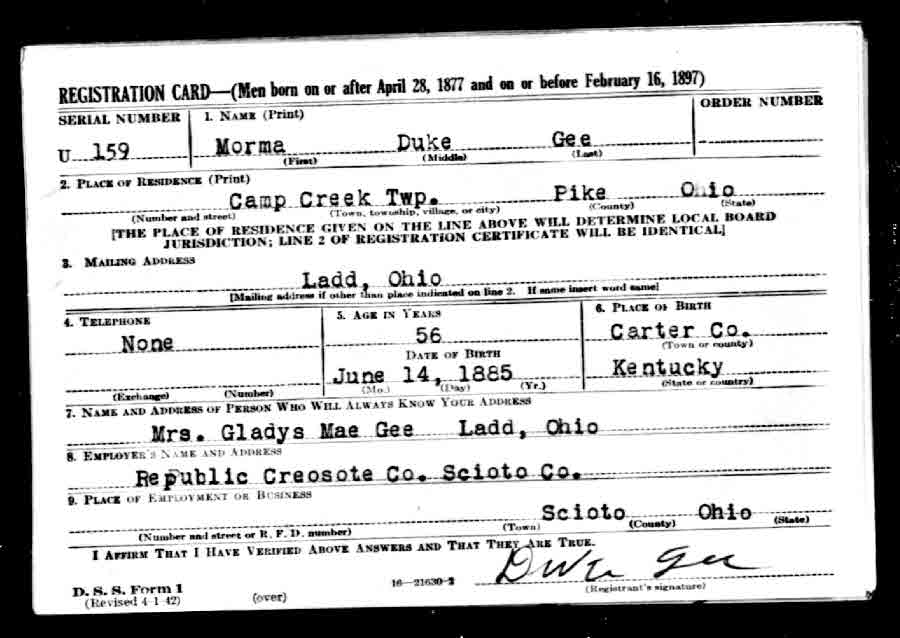 REGISTRATION CARD—(Men born on or after April 28, 1877 and on or before February 16, 1897)
SERIAL NUMBER 1. NAME (Print) ORDER NUMBER
U 159 Morma Duke Gee
(First) (Middle) (Last)
2. PLACE OF RESIDENCE (Print)
Camp Creek Twp. Pike Ohio
(Number and street) (Town, township, village, or city) (County) (State)
[THE PLACE OF RESIDENCE GIVEN ON THE LINE ABOVE WILL DETERMINE LOCAL BOARD
JURISDICTION; LINE 2 OF REGISTRATION CERTIFICATE WILL BE IDENTICAL]
3. MAILING ADDRESS
Ladd, Ohio
[Mailing address if other than place indicated on line 2. If same insert word same]
4. TELEPHONE 5. AGE IN YEARS 6. PLACE OF BIRTH
None 56 Carter Co.
DATE OF BIRTH (Town or county)
June 14, 1885 Kentucky
(Exchange) (Number) (Mo.) (Day) (Yr.) (State or country)
7. NAME AND ADDRESS OF PERSON WHO WILL ALWAYS KNOW YOUR ADDRESS
Mrs. Gladys Mae Gee Ladd, Ohio
8. EMPLOYER'S NAME AND ADDRESS
Republic Creosote Co. Scioto Co.
9. PLACE OF EMPLOYMENT OR BUSINESS
Scioto Ohio
(Number and street or R. F. D. number) (Town) (County) (State)
I AFFIRM THAT I HAVE VERIFIED ABOVE ANSWERS AND THAT THEY ARE TRUE.
Duke Gee
D. S. S. Form 1 16—21630-2 (Registrant's signature)
(Revised 4-1-42) (over)